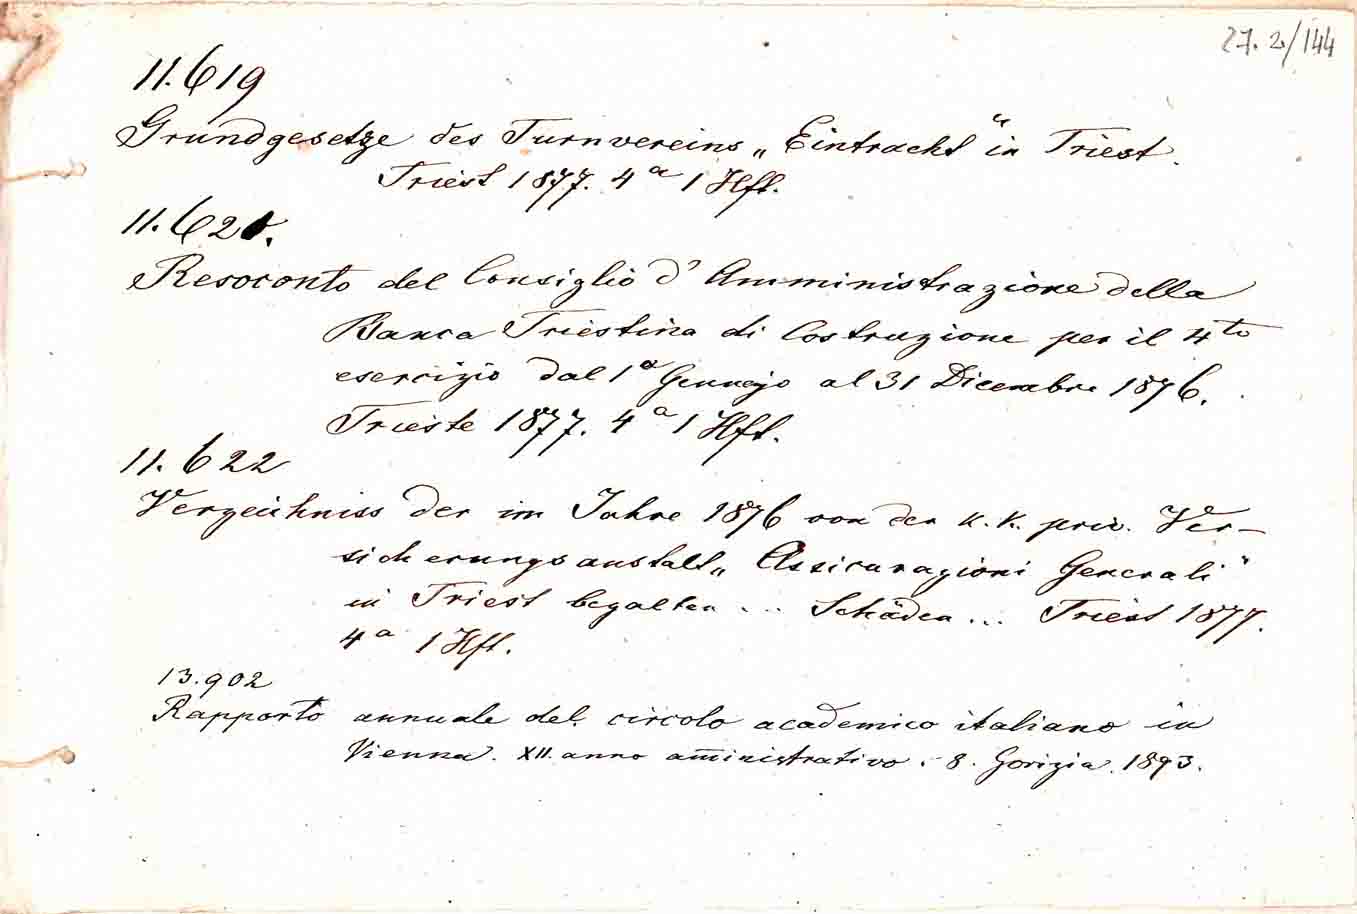 27.2/144
11.619
Grundgesetze des Turnvereins „Eintracht“ in Triest.
Triest 1877. 4a 1 Hft.
11.621.
Resoconto del Consiglio d'Amministrazione della
Banca Triestina di Costruzione per il 4to
esercizio dal 1o Gennajo al 31 Dicembre 1876.
Trieste 1877. 4a 1 Hft.
11.622
Verzeichniss der im Jahre 1876 von der k.k. priv. Ver-
sicherungsanstalt „Assicurazioni Generali“
in Triest bezalten ... Schäden ... Triest 1877.
4a 1 Hft.
13.902
Rapporto annuale del circolo academico italiano in
Vienna. XII. anno am̄inistrativo. 8. Gorizia. 1893.